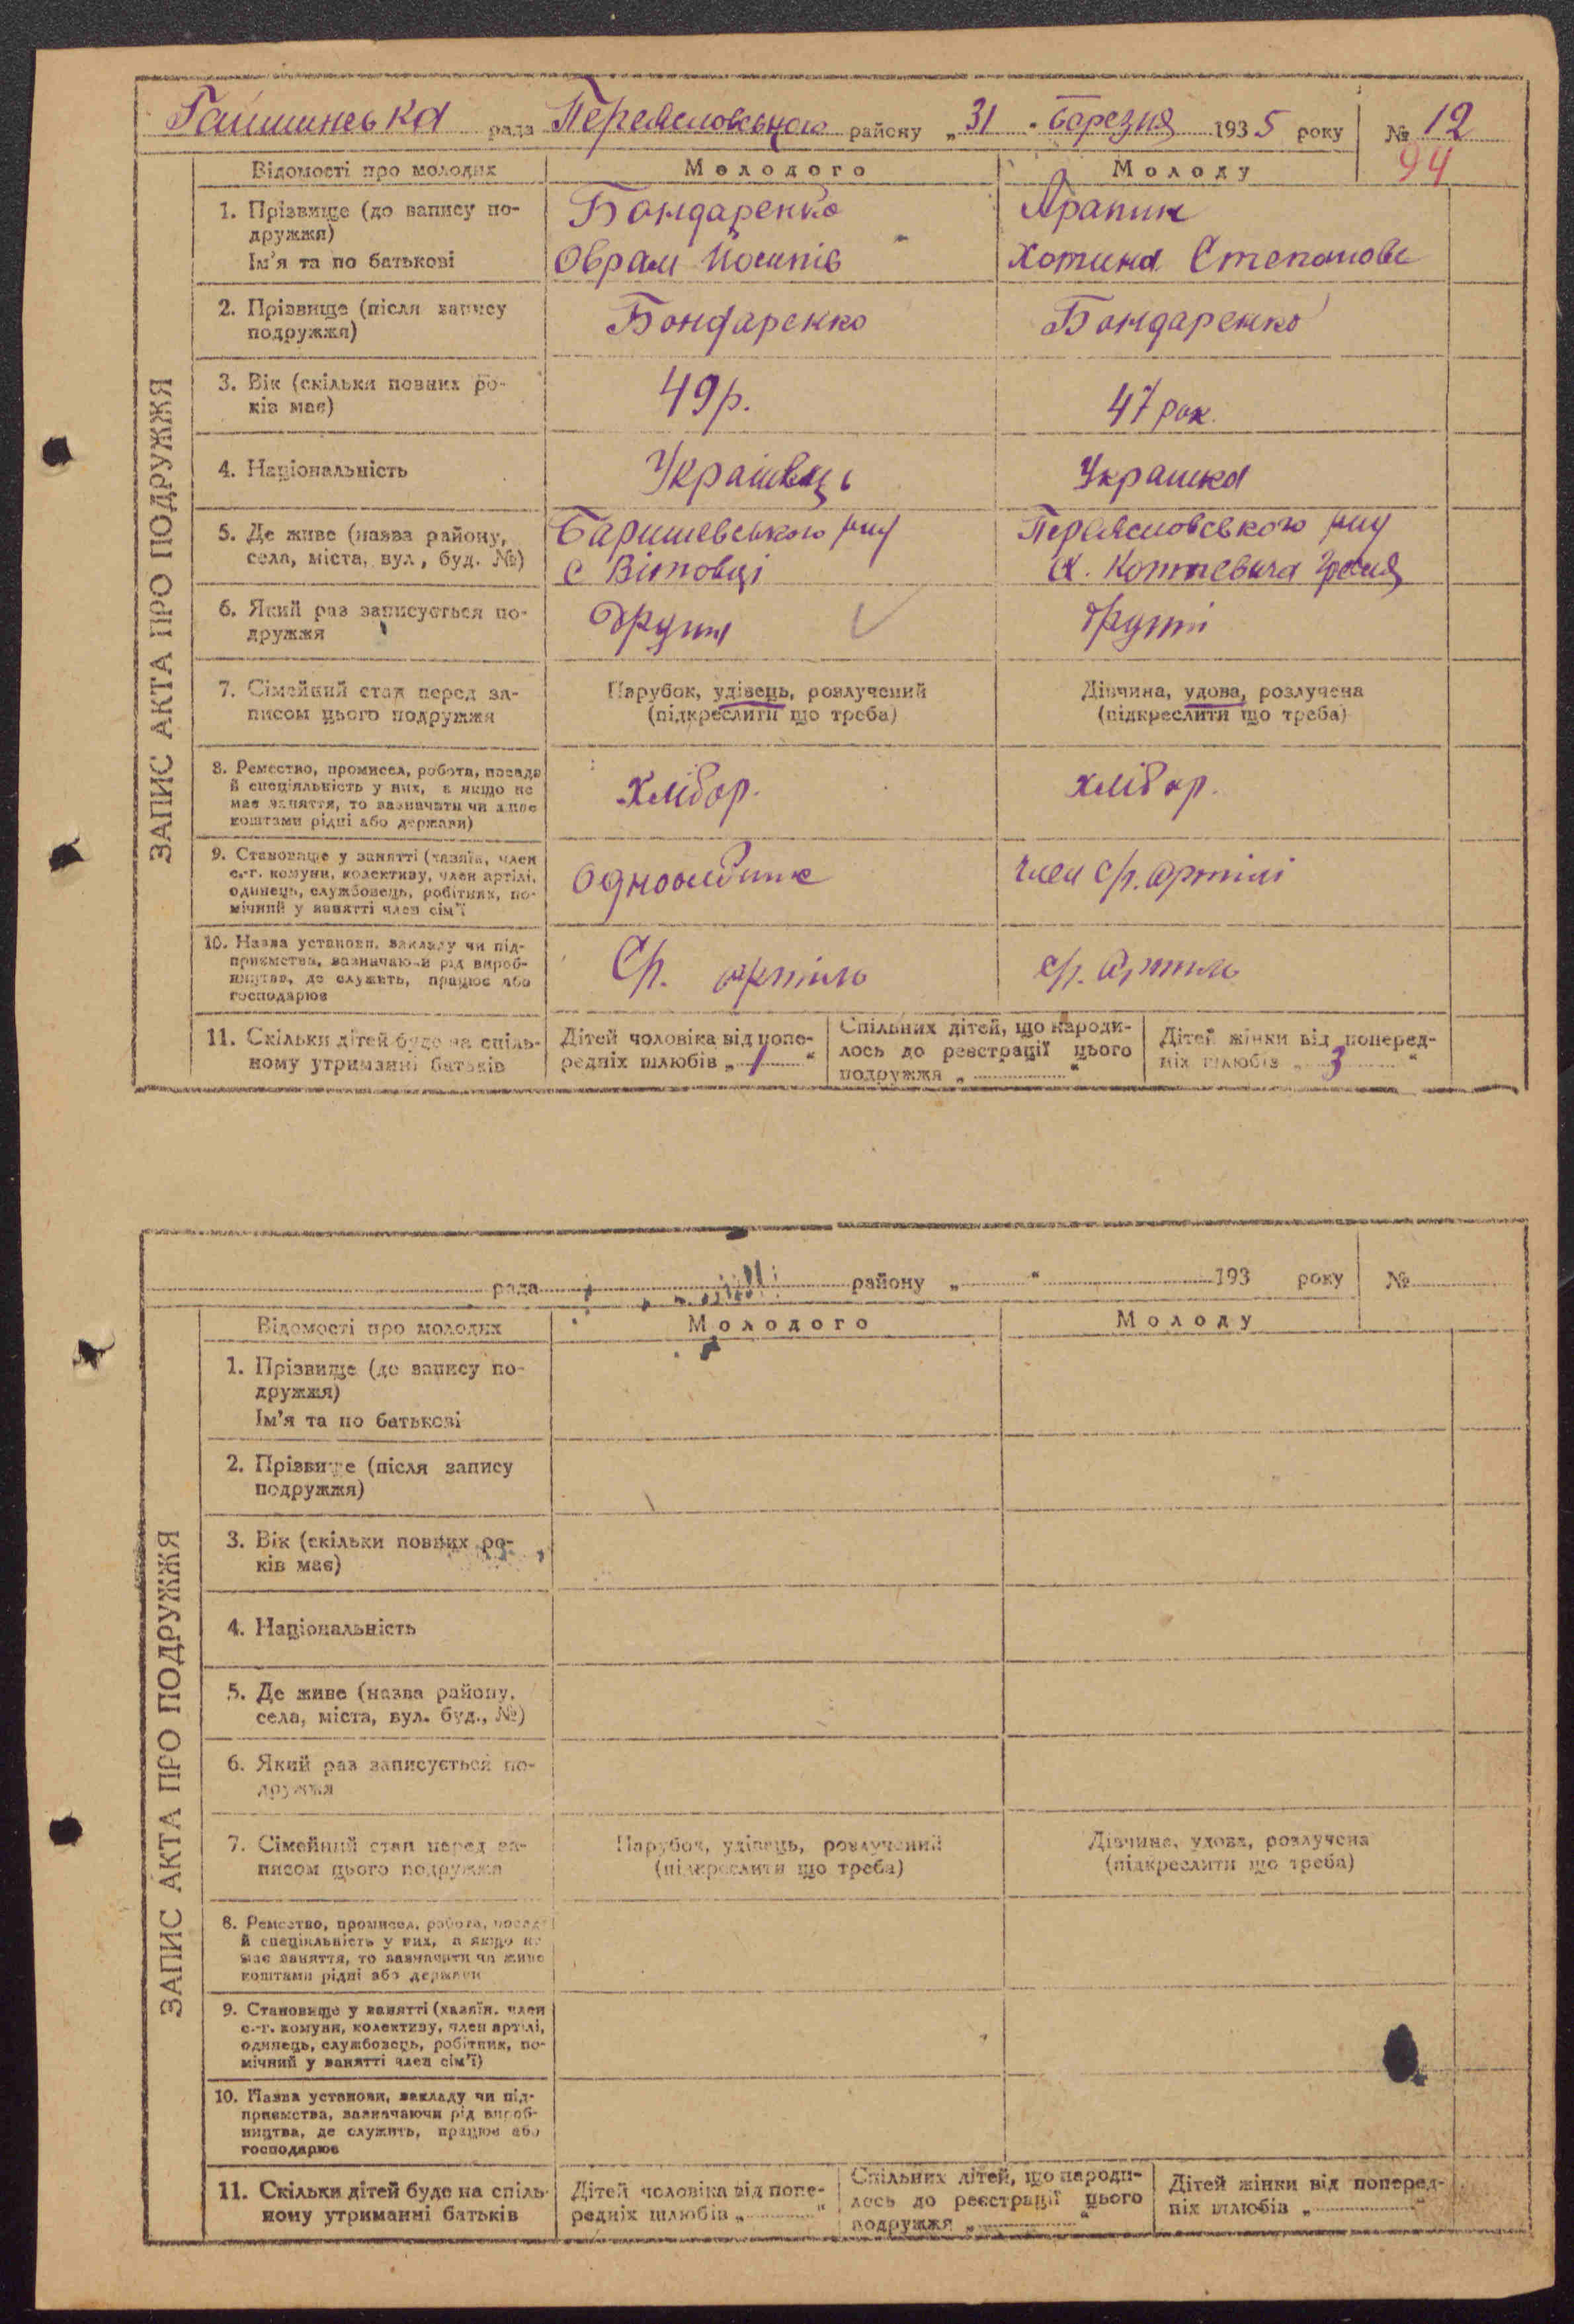 Гайшинська рада Переяславського району „31“ березня 1935 року № 12
94
ЗАПИС АКТА ПРО ПОДРУЖЖЯ
Відомості про молодих Молодого Молоду
1. Прізвище (до запису по- Бондаренко Арапин
дружжя)
Ім'я та по батькові Оврам Йосипів Хотина Степанова
2. Прізвище (після запису Бондаренко Бондаренко
подружжя)
3. Вік (скільки повних ро- 49 р. 47 рок.
ків має)
4. Національність Українець Українка
5. Де живе (назва району, Баришевського Переяславського
села, міста, вул., буд. №) с Вітовці х.
6. Який раз записується по- другий
дружжя
7. Сімейний стан перед за- Парубок, удівець, розлучений Дівчина, удова, розлучена
писом цього подружжя (підкреслити що треба) (підкреслити що треба)
8. Ремество, промисел, робота, посада
й спеціяльність у них, а якщо не хлібор. хлібор.
має заняття, то зазначати чи живе
коштами рідні або держави)
9. Становище у занятті (хазяїн, член
с.-г. комуни, колективу, член артілі, член с/г. артілі
одинець, службовець, робітник, по-
мічний у занятті член сім'ї
10. Назва установи, закладу чи під-
приємства, зазначаючи рід вироб- С/г. артіль с/г. артиль
ництва, де служить, працює або
господарює
11. Скільки дітей буде на спіль- Дітей чоловіка від попе- Спільних дітей, що народи- Дітей жінки від поперед-
ному утриманні батьків редніх шлюбів „1“ лось до реєстрації цього ніх шлюбів „3“
подружжя „ “
рада району „ “ 193 року №
ЗАПИС АКТА ПРО ПОДРУЖЖЯ
Відомості про молодих Молодого Молоду
1. Прізвище (до запису по-
дружжя)
Ім'я та по батькові
2. Прізвище (після запису
подружжя)
3. Вік (скільки повних ро-
ків має)
4. Національність
5. Де живе (назва району,
села, міста, вул. буд., №)
6. Який раз записується по-
дружжя
7. Сімейний стан перед за- Парубок, удівець, розлучений Дівчина, удова, розлучена
писом цього подружжя (підкреслити що треба) (підкреслити що треба)
8. Ремество, промисел, робота, посада
й спеціяльність у них, а якщо не
має заняття, то зазначити чи живе
коштами рідні або держави
9. Становище у занятті (хазяїн, член
с.-г. комуни, колективу, член артілі,
одинець, службовець, робітник, по-
мічний у занятті член сім'ї)
10. Назва установи, закладу чи під-
приємства, зазначаючи рід вироб-
ництва, де служить, працює або
господарює
11. Скільки дітей буде на спіль- Дітей чоловіка від попе- Спільних дітей, що народи- Дітей жінки від поперед-
ному утриманні батьків редніх шлюбів „ “ лось до реєстрації цього ніх шлюбів „ “
подружжя „ “